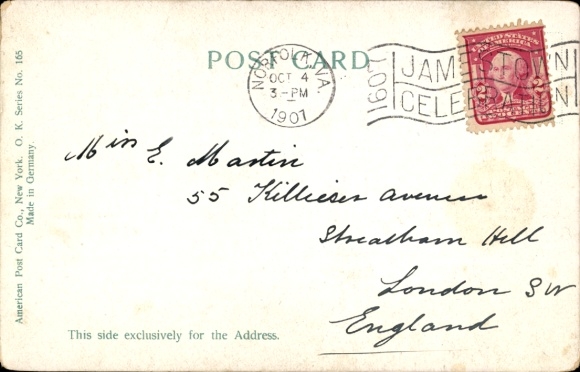 American Post Card Co., New York. O. K. Series No. 165
Made in Germany.
POST CARD
NORFOLK, VA.
OCT 4
3-PM
1907
1607
JAMESTOWN
CELEBRATION
UNITED STATES
OF AMERICA
2 2
Miss E. Martin
55 Killieser Avenue
Streatham Hill
London SW
England
This side exclusively for the Address.